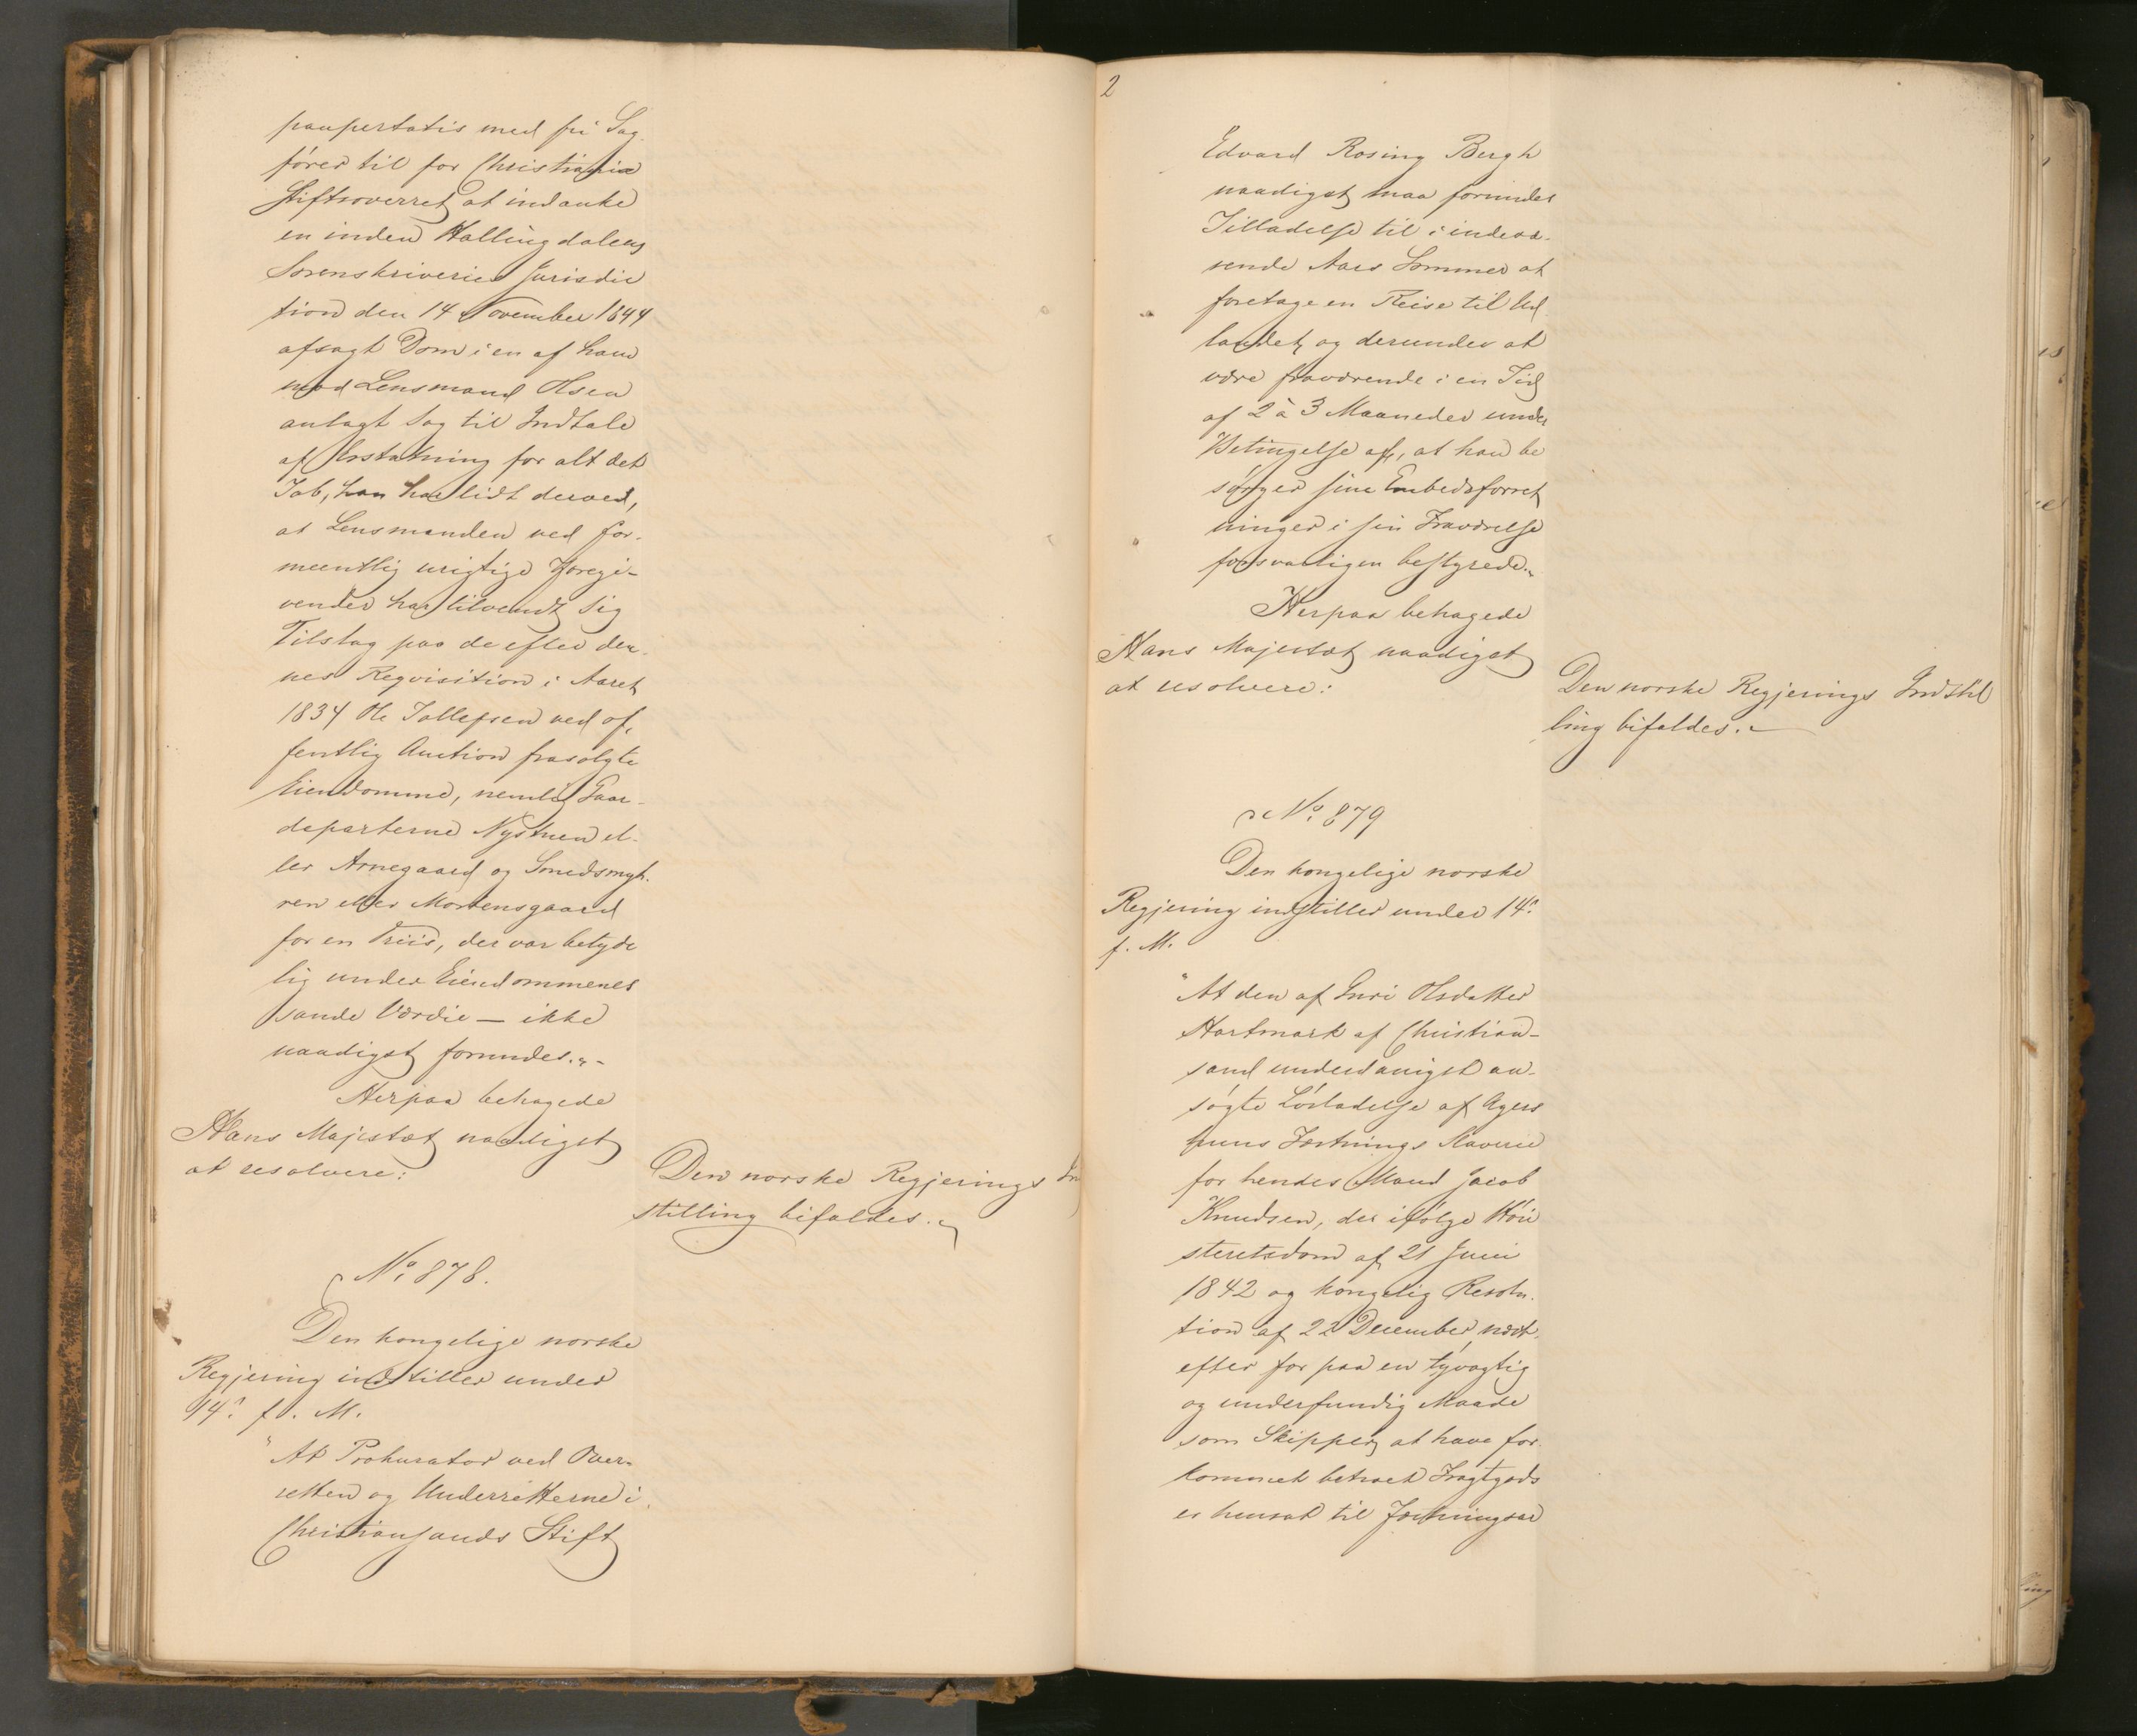 paupertatis med fri Sag-
fører til for Christiania
Stiftsoverret at indanke
en inden Hallingdalens
Sorenskriveries Jurisdic
tion den 14 November 1844
afsagt Dom i en af ham
mod Lensmand Olsen
anlagt Sag til Indtale
af Erstatning for alt det
Tab, han har lidt derved,
at Lensmanden ved for-
meentlig urigtige Foregi-
vender har tilvendt sig
Tilslag paa de efter den-
nes Reqvisition i Aaret
1834 Ole Tollefsen ved of-
fentlig Auction frasolgte
Eiendomme, nemlig Gaar-
departerne Nystuen el-
ler Arnegaard og Smedsmyh-
ren eller Mortensgaard
for en Priis, der var betyde
lig under Eiendommenes
sande Værdie — ikke
naadigst forundes."-
Herpaa behagede
Hans Majestæt naadigst
at resolvere:
Den norske Regjerings In
stilling bifaldes.
No. 878.
Den kongelige norske
Regjering indstiller under
14. f. M.
"At Prokurator ved Over-
retten og Underretterne i
Christiansands Stift
2
Edvard Rosing Bergh
naadigst maa forundes
Tilladelse til i indevæ-
rende Aars Sommer at
foretage en Reise til Ud
landet, og derunder at
være fraværende i en Tid
af 2 à 3 Maaneder under
Betingelse af, at han be
sørger sine Embedsforret
ninger i sin Fraværelse
forsvarligen bestyrede."
Herpaa behagede
Hans Majestæt naadigst
at resolvere:
Den norske Regjerings Indstil
ling bifaldes.
No. 879
Den kongelige norske
Regjering indstiller under 14.
f. M.
"At den af Guri Olsdatter
Hartmark af Christian-
sand underdanigst an-
søgte Løsladelse af Agers
huus Fæstnings Slaverie
for hendes Mand Jacob
Knudsen, der ifølge Høie
steretsdom af 21 Juni
1842 og kongelig Resolu-
tion af 22 December næst-
efter for paa en tyvagtig
og underfundig Maade
som Skipper at have for-
kommet betroet Fragtgods
er hensat til Fæstningsar